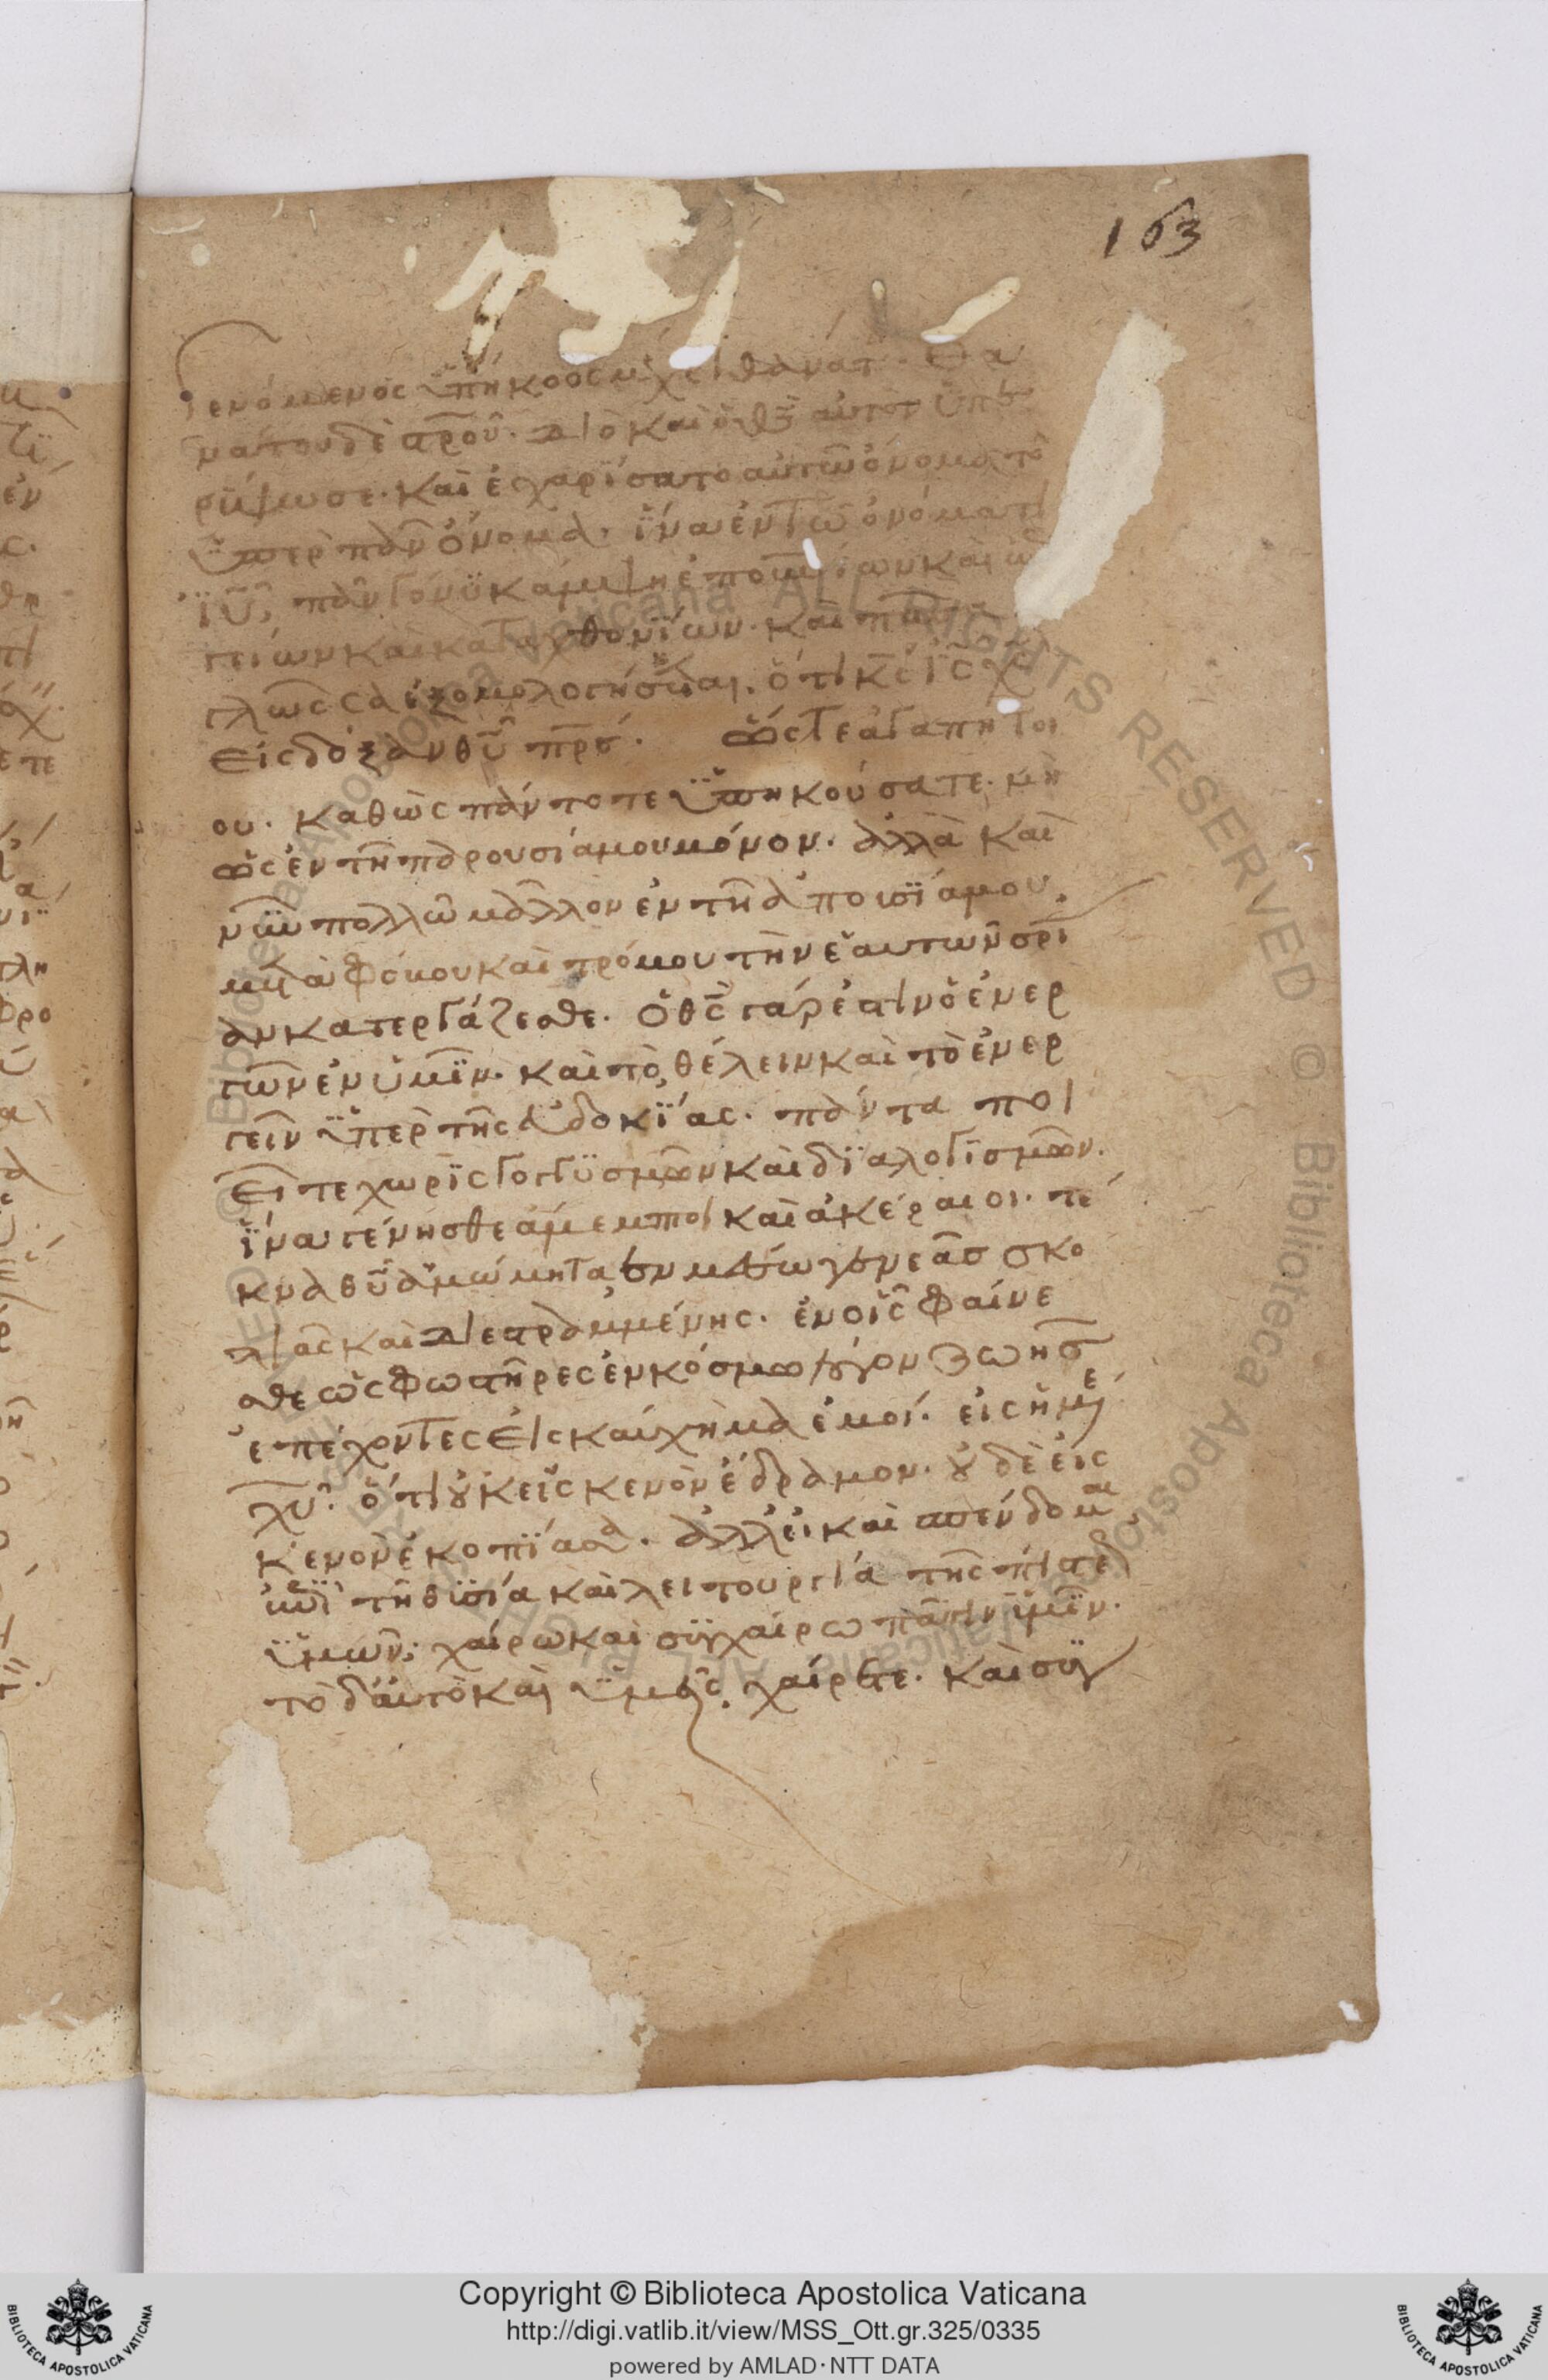 163
γενόμενος ὑπήκοος μέχρι θανάτ. θα
νάτου δὲ στροῦ. διὸ καὶ ὁ θς αὐτὸν ὑπε
ρύψωσε. καὶ ἐχαρίσατο αὐτῶ ὄνομα τὸ
ὑπὲρ πᾶν ὄνομα. ἵνα ἐν τῶ ὀνόματι
ἰῦ, πᾶν γόνυ κάμψη ἐπουνίων καὶ ἐπι
γείων καὶ καταχθονίων. καὶ πᾶσα
γλῶσσα ἐξομολογήσηται. ὅτι κς ἰς χς
εἰς δόξαν θῦ πρς. ὥστε ἀγαπητοί
ου. καθὼς πάντοτε ὑπηκούσατε. μὴ
ὡς ἐν τῆ παρουσία μου μόνον. ἀλλὰ καὶ
νῦν πολλῶ μᾶλλον ἐν τῆ ἀπουσία μου.
μετὰ φόβου καὶ τρόμου τὴν ἑαυτῶν σρί
αν κατεργάζεσθε. ὁ θς γάρ ἐστιν ὁ ἐνερ
γῶν ἐν ὑμῖν. καὶ τὸ θέλειν καὶ τὸ ἐνερ
γεῖν ὑπὲρ τῆς εὐδοκίας. πάντα ποι
εῖτε χωρὶς γογγυσμῶν καὶ διαλογισμῶν.
ἵνα γένησθε ἄμεμπτοι καὶ ἀκέραιοι. τέ
κνα θῦ ἀμώμητα ἐν μέσω γενεᾶσ σκο
λιᾶς καὶ διεστραμμένης. ἐν οἷς φαίνε
σθε ὡς φωστῆρες ἐν κόσμω λόγον ζωῆσ
ἐπέχοντες εἰς καύχημα ἐμοί. εἰς ἡμέ
χυ. ὅτι οὐκ εἰς κενὸν ἔδραμον. οὐδὲ εἰς
κενὸν ἐκοπίασα. ἀλλ εἰ καὶ σπένδομαι
ἐπὶ τῆ θυσία καὶ λειτουργία τῆς πίστε
ὑμῶν, χαίρω καὶ συγχαίρω πᾶσιν ὑμῖν.
τὸ δ αὐτὸ καὶ ὑμεῖς χαίρετε. καὶ συγ
Copyright © Biblioteca Apostolica Vaticana
http://digi.vatlib.it/view/MSS_Ott.gr.325/0335
powered by AMLAD·NTT DATA